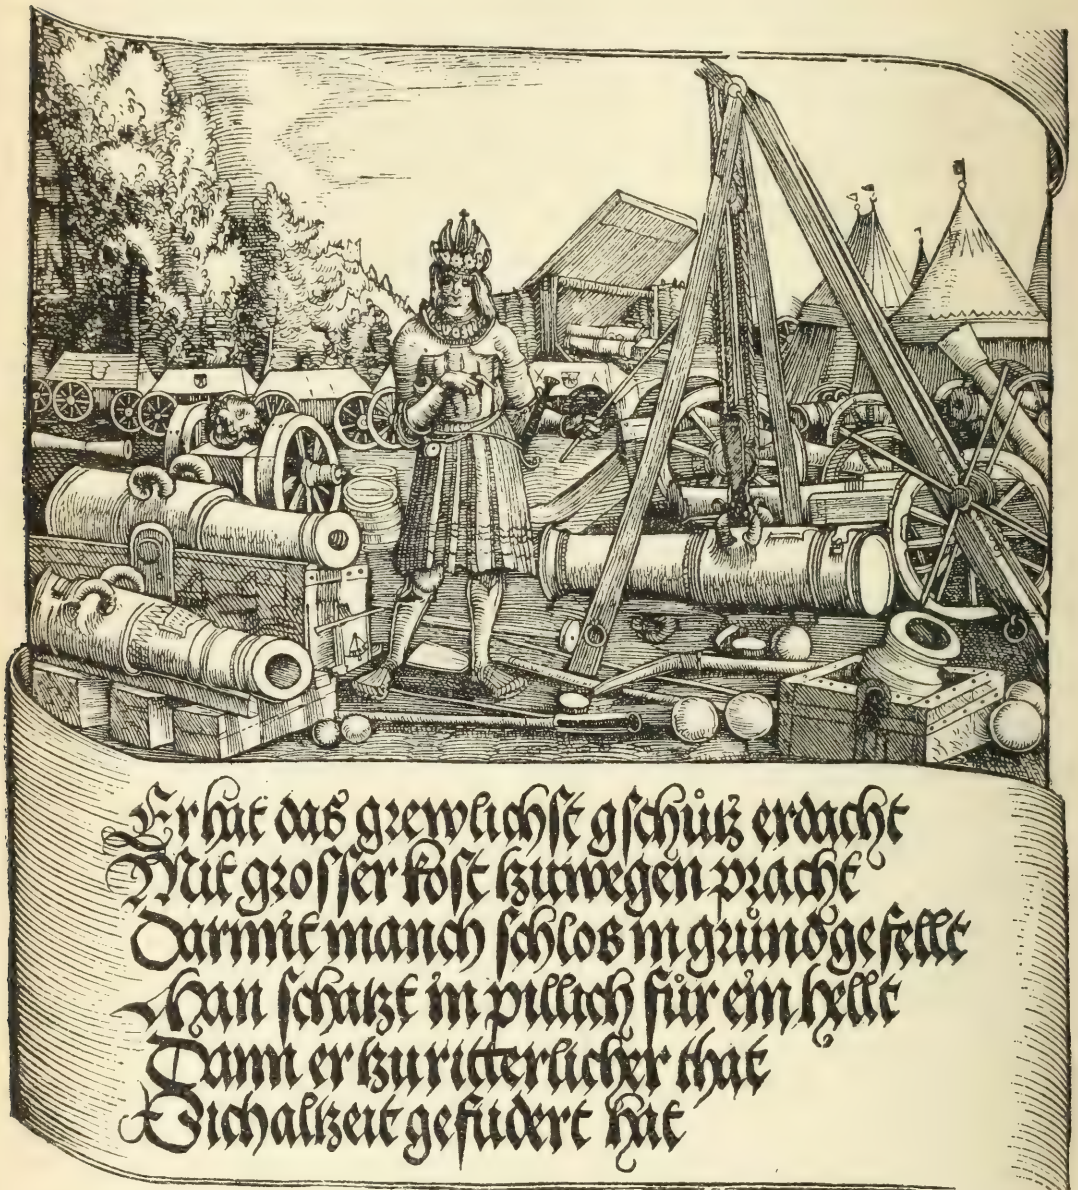 Er hat das grewlichst gschütz erdacht
Mit grosser kost tzuwegen pracht
Darmit manch schlos in grůnd gefellt
Man schatzt in pillich fůr ein hellt
Dann er tzu ritterlicher that
Sich altzeit gefudert hat